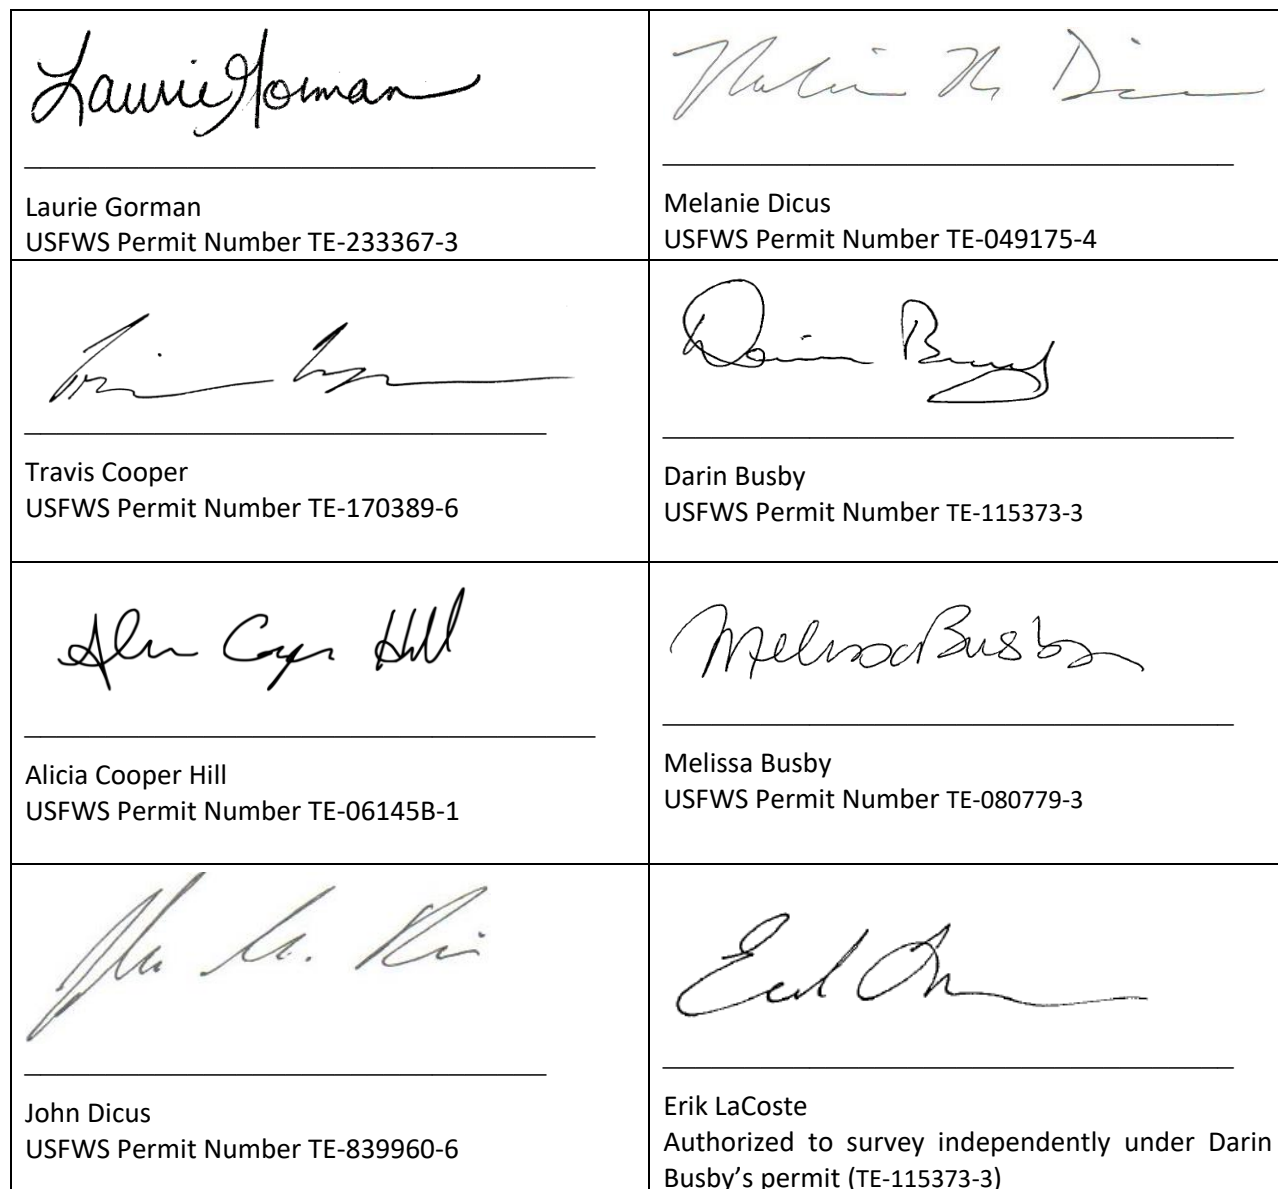 Laurie Gorman
Laurie Gorman
USFWS Permit Number TE-233367-3
Melanie Dicus
USFWS Permit Number TE-049175-4
Travis Cooper
USFWS Permit Number TE-170389-6
Darin Busby
Darin Busby
USFWS Permit Number TE-115373-3
Hill
Alicia Cooper Hill
USFWS Permit Number TE-06145B-1
Melissa Busby
Melissa Busby
USFWS Permit Number TE-080779-3
John Dicus
USFWS Permit Number TE-839960-6
Erik LaCoste
Authorized to survey independently under Darin
Busby’s permit (TE-115373-3)